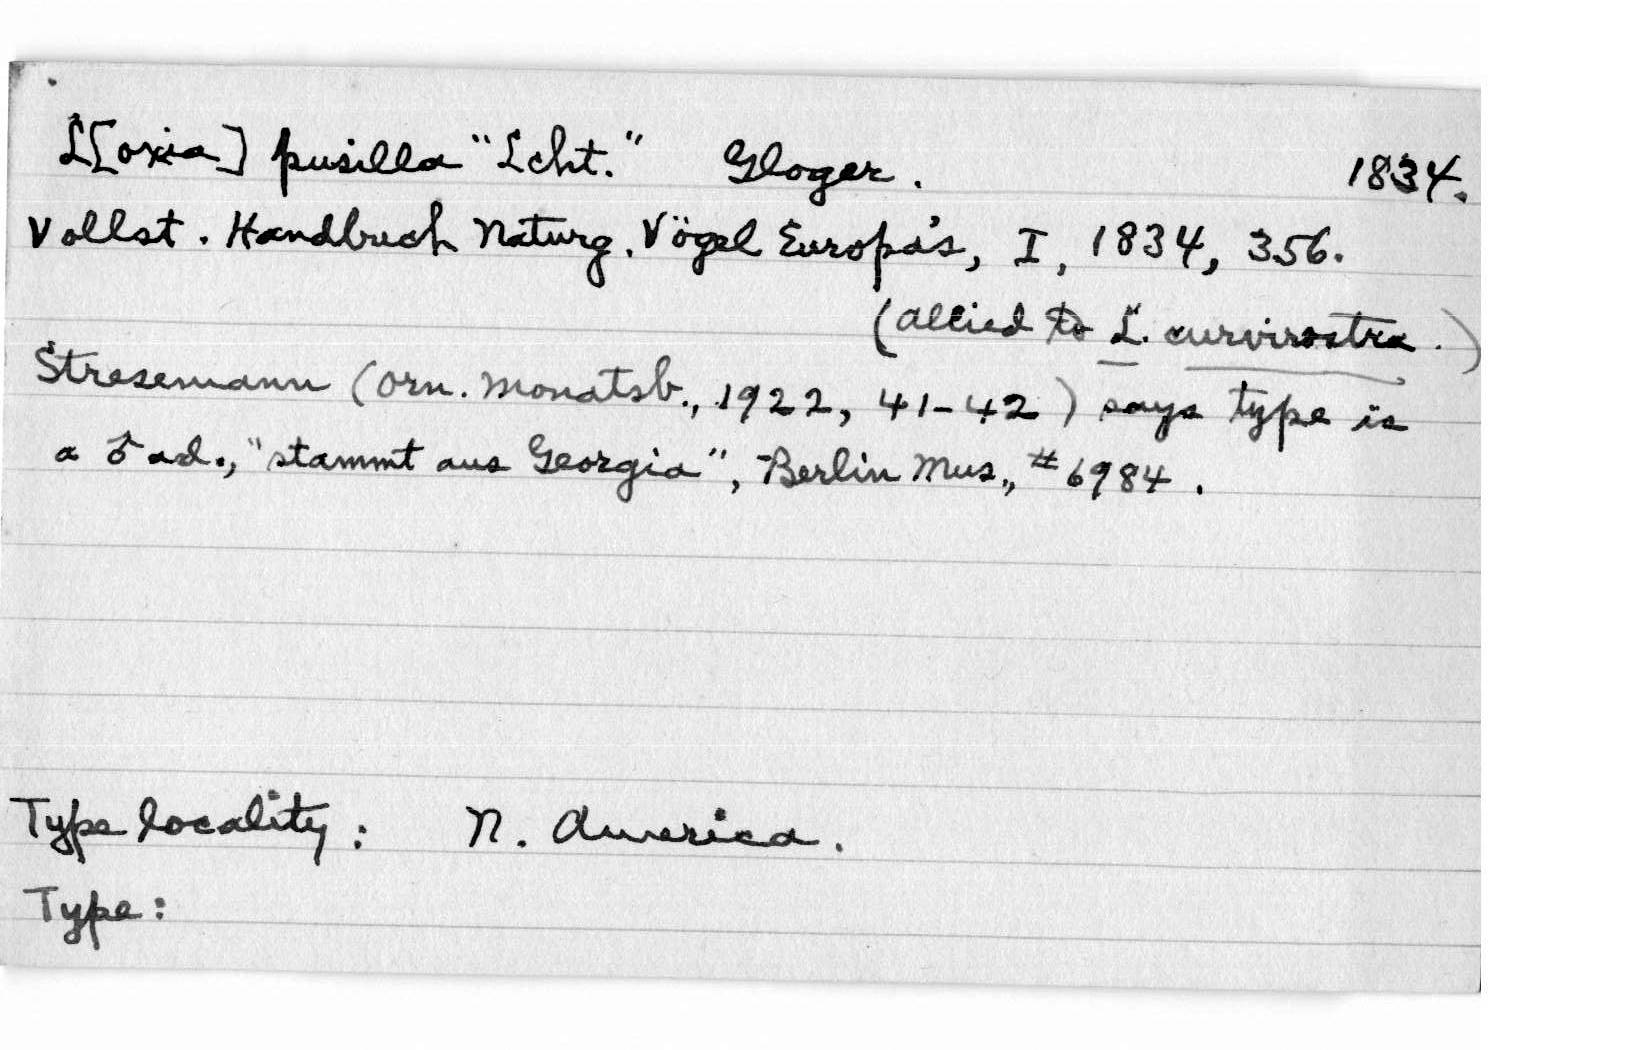 L[oxia] pusilla "Lcht." Gloger. 1834.
Vollst. Handbuch Naturg. Vögel Europa's, I, 1834, 356.
(allied to L. curvirostra.)
Stresemann (Orn. Monatsb., 1922, 41-42) says type is
a ♂ ad., "stammt aus Georgia", Berlin Mus., #6984.
Type locality: N. America.
Type: